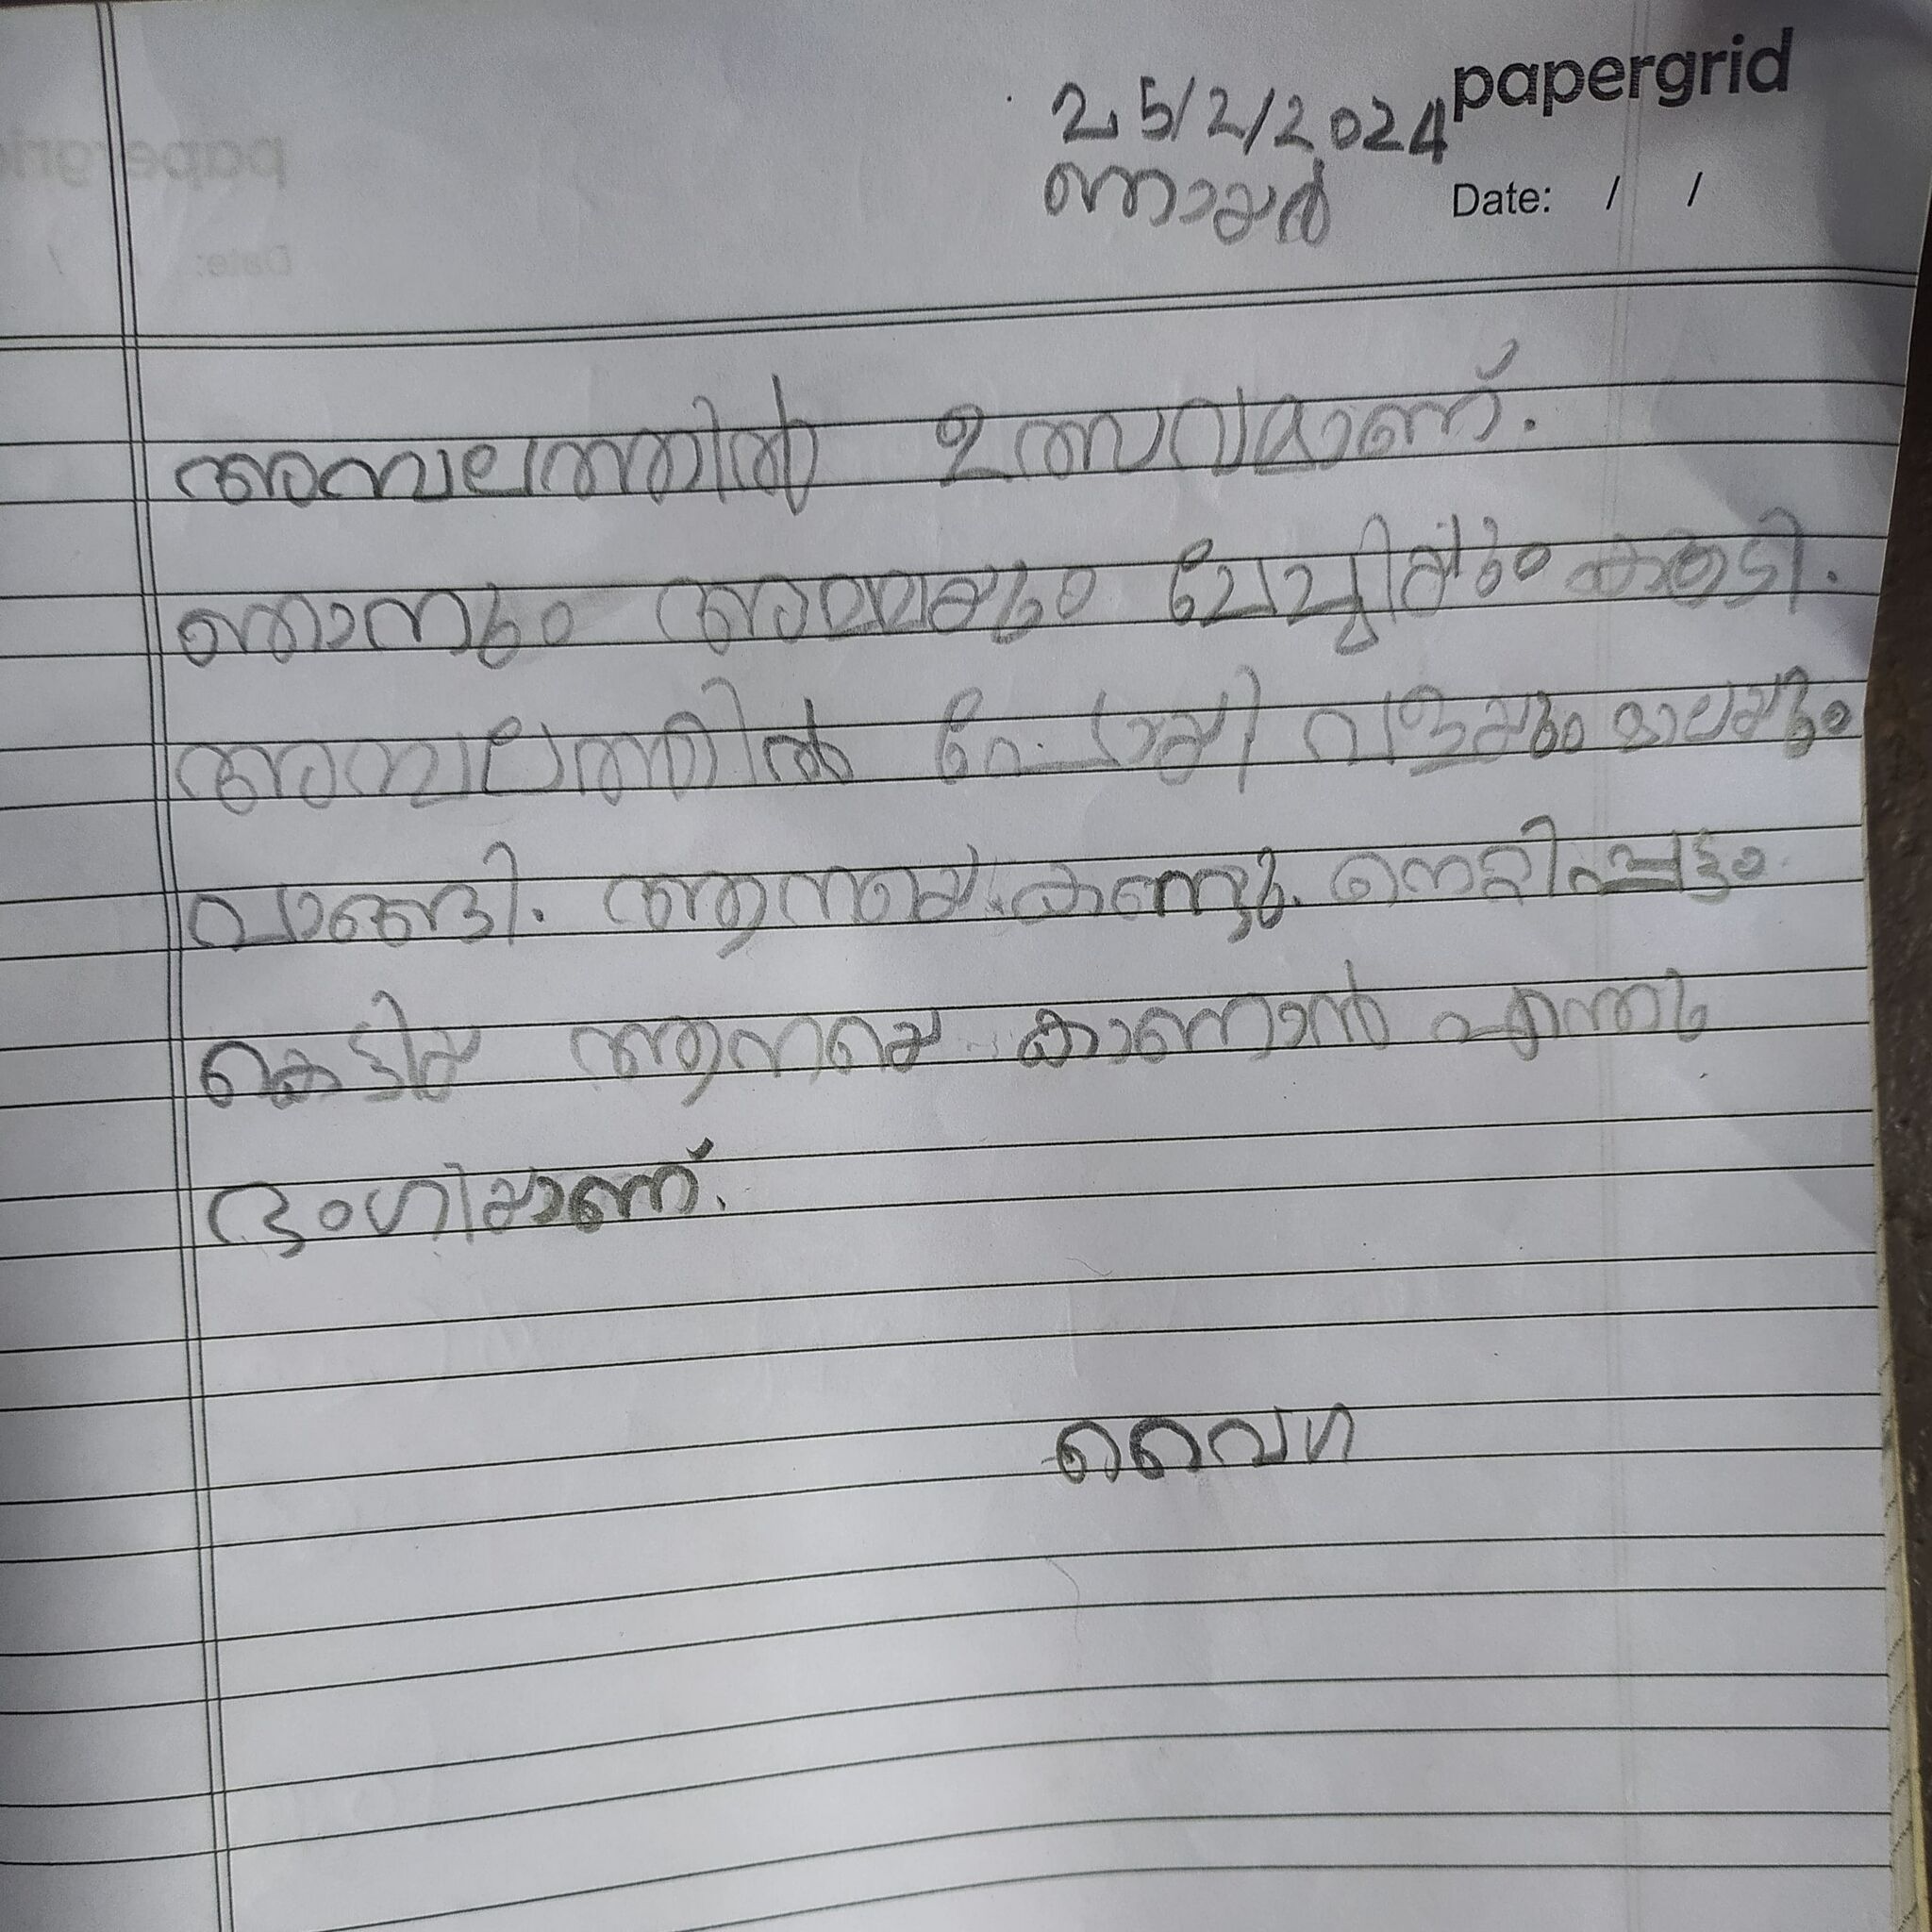 papergrid
25/2/2024
ഞായർ
Date: / /
അമ്പലത്തിൽ ഉത്സവമാണ്.
ഞാനും അമ്മയും ചേച്ചിയും കൂടി.
അമ്പലത്തിൽ പോയി വളയും മാലയും
വാങ്ങി. ആനയെ കണ്ടു. നെറ്റിപ്പട്ടം
കെട്ടിയ ആനയെ കാണാൻ എന്തു
ഭംഗിയാണ്.
വൈഗ